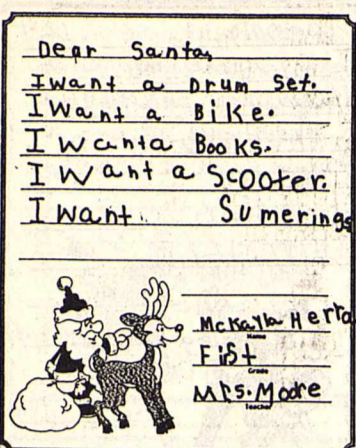 Dear Santa,
I want a Drum Set.
I Want a Bike.
I Wanta Books.
I Want a Scooter.
I want Sumerings
McKayla Herra
Name
First
Grade
Mrs. Moore
Teacher